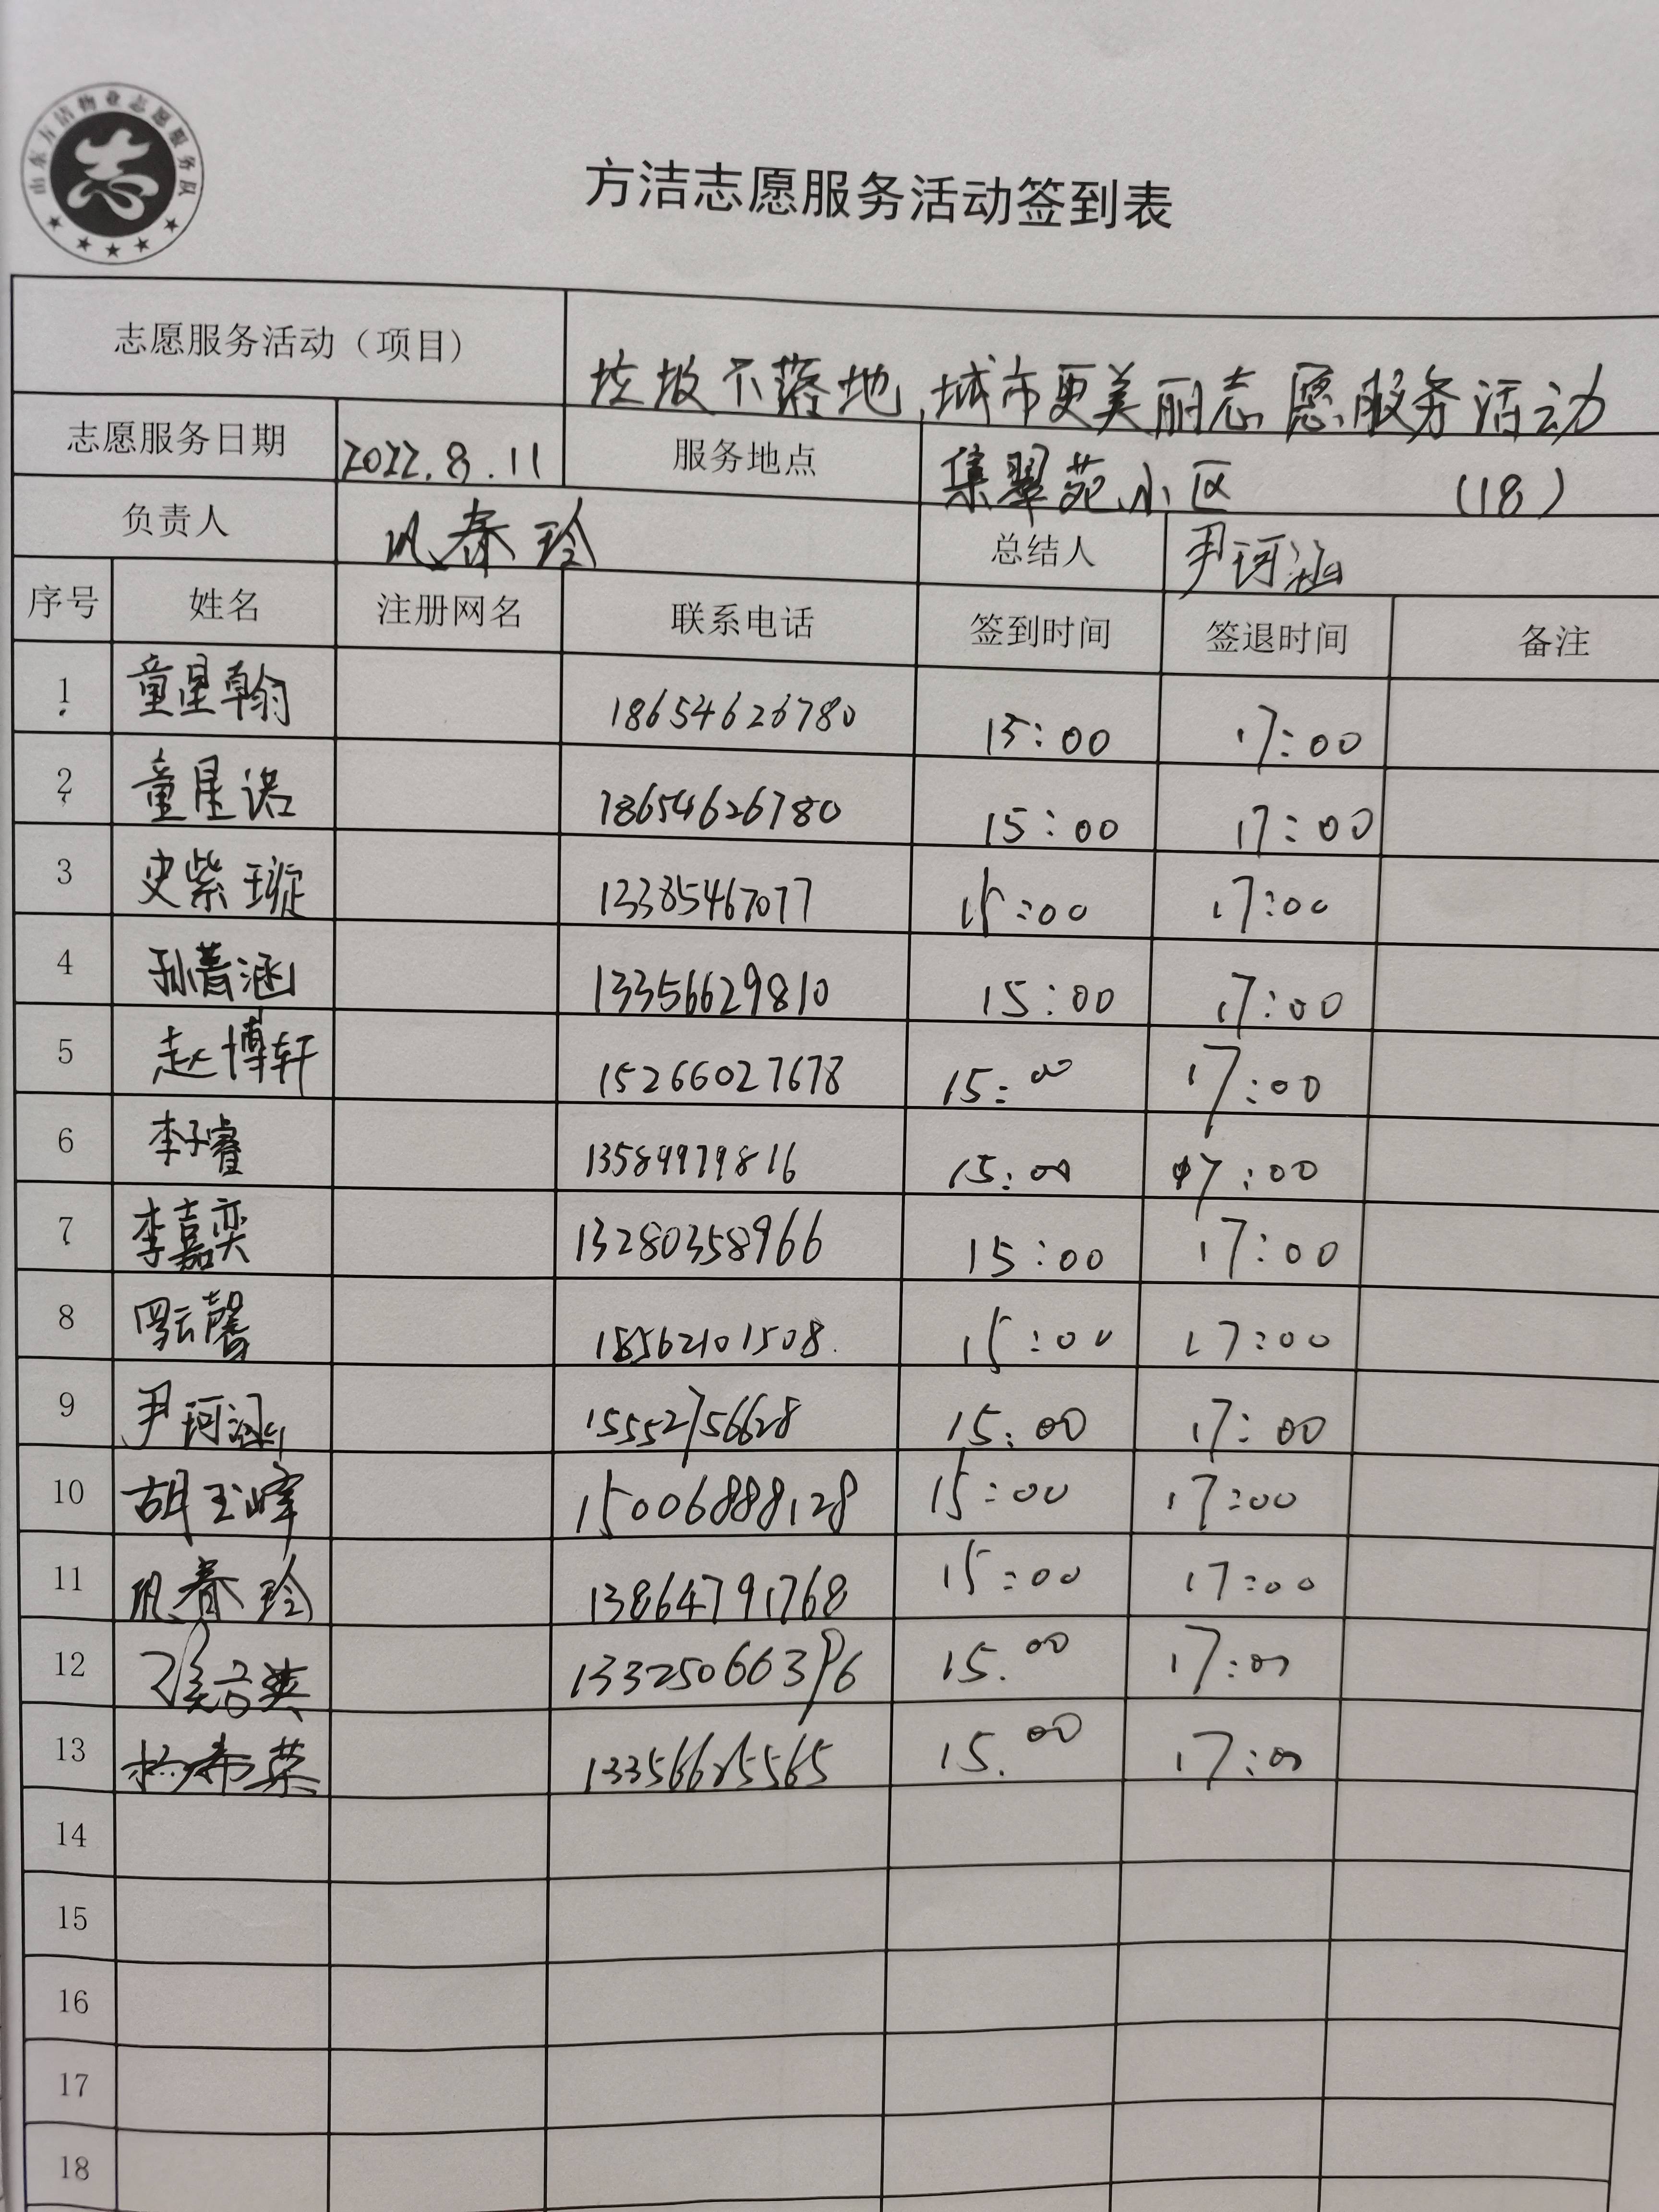 山东方洁物业志愿服务队
志
方洁志愿服务活动签到表
志愿服务活动（项目） 垃圾不落地,城市更美丽志愿服务活动
志愿服务日期 2022.8.11 服务地点 集翠苑小区 (18)
负责人 巩春玲 总结人 尹珂涵
序号 姓名 注册网名 联系电话 签到时间 签退时间 备注
1 童星翰 18654626780 15:00 17:00
2 童星诺 18654626780 15:00 17:00
3 史紫璇 13385467077 15:00 17:00
4 孙菩涵 13356629810 15:00 17:00
5 赵博轩 15266027678 15:00 17:00
6 李子睿 13589979816 15:00 17:00
7 李嘉奕 13280358966 15:00 17:00
8 罗云馨 18562101508. 15:00 17:00
9 尹珂涵 15552756628 15:00 17:00
10 胡玉峰 15006888128 15:00 17:00
11 巩春玲 13864791768 15:00 17:00
12 13325066396 15.00 17:00
13 杨希荣 15.00 17:00
14
15
16
17
18